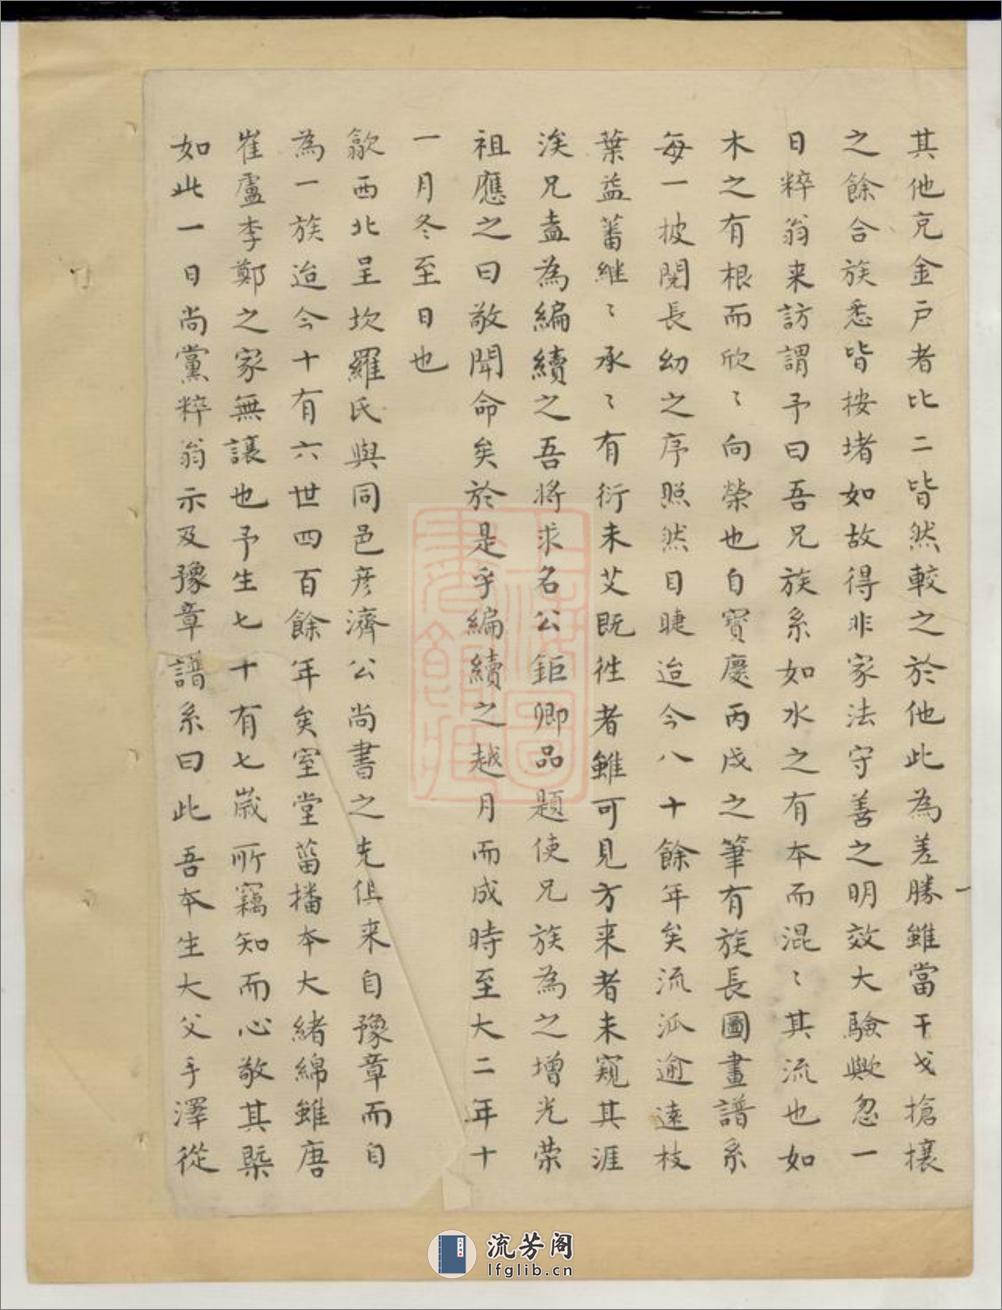 其他充金戸者比二皆然較之於他此為差勝雖當干戈搶攘
之餘合族悉皆按堵如故得非家法守善之明效大驗歟忽一
日粹翁来訪謂予曰吾兄族系如水之有本而混〻其流也如
木之有根而欣〻向榮也自寶慶丙戌之筆有族長圖畫譜系
每一披閱長幼之序照然目睫迨今八十餘年矣流派逾遠枝
葉益蕃継〻承〻有衍未艾既徃者雖可見方来者未窺其涯
涘兄盍為編續之吾将求名公鉅卿品題使兄族為之增光荣
祖應之曰敬聞命矣於是乎編續之越月而成時至大二年十
一月冬至日也
歙西北呈坎羅氏與同邑彦濟公尚書之先俱来自豫章而自
為一族迨今十有六世四百餘年矣室堂菑播本大緒綿雖唐
崔盧李鄭之家無讓也予生七十有七歲所竊知而心敬其槩
如此一日尚黨粹翁示及豫章譜系曰此吾本生大父手澤從
上海圖
書館藏
流芳阁
lfglib.cn